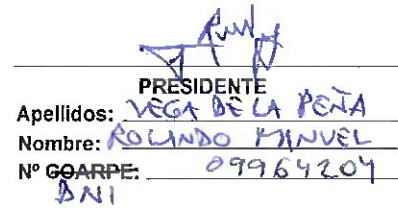 PRESIDENTE
Apellidos: VEGA DE LA PEÑA
Nombre: ROLANDO MANUEL
Nº GOARPE: 09964204
DNI